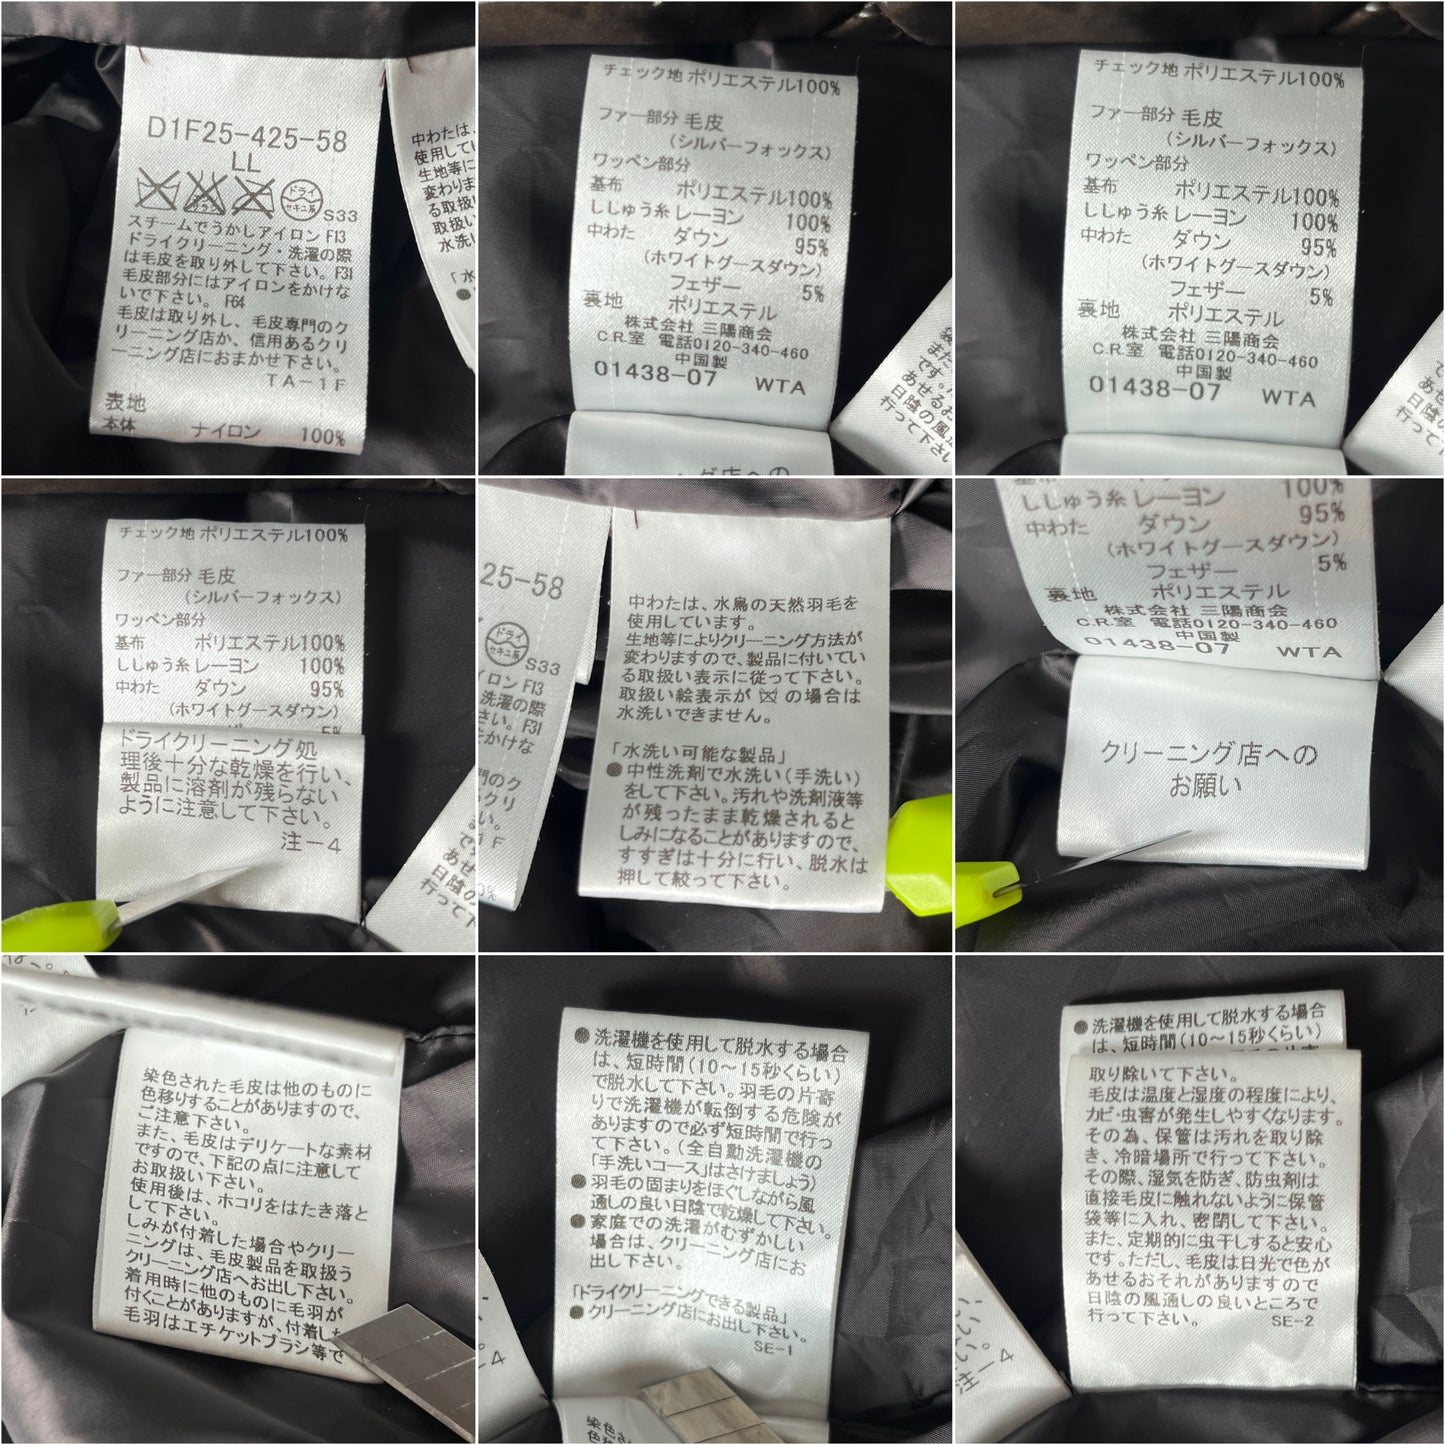 D1F25-425-58
LL
ドライ
セキユ系
S33
スチームでうかしアイロン F13
ドライクリーニング・洗濯の際
は毛皮を取り外して下さい。F31
毛皮部分にはアイロンをかけな
いで下さい。 F64
毛皮は取り外し、毛皮専門のク
リーニング店か、信用あるクリ
ーニング店におまかせ下さい。
TA-1F
表地
本体 ナイロン 100%
中わたは、
使用してい
生地等に
変わりま
る取扱い
取扱い
水洗い
「水
チェック地 ポリエステル100%
ファー部分 毛皮
(シルバーフォックス)
ワッペン部分
基布 ポリエステル100%
ししゅう糸 レーヨン 100%
中わた ダウン 95%
(ホワイトグースダウン)
フェザー 5%
裏地 ポリエステル
株式会社 三陽商会
C.R.室 電話0120-340-460
中国製
01438-07 WTA
ング店への
チェック地 ポリエステル100%
ファー部分 毛皮
(シルバーフォックス)
ワッペン部分
基布 ポリエステル100%
ししゅう糸 レーヨン 100%
中わた ダウン 95%
(ホワイトグースダウン)
フェザー 5%
裏地 ポリエステル
株式会社 三陽商会
C.R.室 電話0120-340-460
中国製
01438-07 WTA
チェック地 ポリエステル100%
ファー部分 毛皮
(シルバーフォックス)
ワッペン部分
基布 ポリエステル100%
ししゅう糸 レーヨン 100%
中わた ダウン 95%
(ホワイトグースダウン)
ドライクリーニング処
理後十分な乾燥を行い、
製品に溶剤が残らない
ように注意して下さい。
注-4
25-58
ドライ
セキユ系
S33
イロン F13
洗濯の際
さい。F31
をかけな
中わたは、水鳥の天然羽毛を
使用しています。
生地等によりクリーニング方法が
変わりますので、製品に付いてい
る取扱い表示に従って下さい。
取扱い絵表示が の場合は
水洗いできません。
「水洗い可能な製品」
●中性洗剤で水洗い(手洗い)
をして下さい。汚れや洗剤液等
が残ったまま乾燥されると
しみになることがありますので、
すすぎは十分に行い、脱水は
押して絞って下さい。
100%
ししゅう糸 レーヨン 100%
中わた ダウン 95%
(ホワイトグースダウン)
フェザー 5%
裏地 ポリエステル
株式会社 三陽商会
C.R.室 電話0120-340-460
中国製
01438-07 WTA
クリーニング店への
お願い
染色された毛皮は他のものに
色移りすることがありますので、
ご注意下さい。
また、毛皮はデリケートな素材
ですので、下記の点に注意して
お取扱い下さい。
使用後は、ホコリをはたき落と
して下さい。
しみが付着した場合やクリー
ニングは、毛皮製品を取扱う
クリーニング店へお出し下さい。
着用時に他のものに毛羽が
付くことがありますが、付着し
毛羽はエチケットブラシ等で
●洗濯機を使用して脱水する場合
は、短時間(10〜15秒くらい)
で脱水して下さい。羽毛の片寄
りで洗濯機が転倒する危険が
ありますので必ず短時間で行っ
て下さい。(全自動洗濯機の
「手洗いコース」はさけましょう)
●羽毛の固まりをほぐしながら風
通しの良い日陰で乾燥して下さい。
●家庭での洗濯がむずかしい
場合は、クリーニング店にお
出し下さい。
「ドライクリーニングできる製品」
●クリーニング店にお出し下さい。
SE-1
●洗濯機を使用して脱水する場合
は、短時間(10〜15秒くらい)
取り除いて下さい。
毛皮は温度と湿度の程度により、
カビ・虫害が発生しやすくなります。
その為、保管は汚れを取り除
き、冷暗場所で行って下さい。
その際、湿気を防ぎ、防虫剤は
直接毛皮に触れないように保管
袋等に入れ、密閉して下さい。
また、定期的に虫干しすると安心
です。ただし、毛皮は日光で色が
あせるおそれがありますので
日陰の風通しの良いところで
行って下さい。 SE-2
注-4